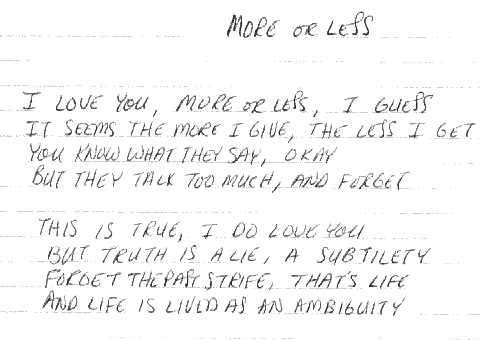 MORE OR LESS
I LOVE YOU, MORE OR LESS, I GUESS
IT SEEMS THE MORE I GIVE, THE LESS I GET
YOU KNOW WHAT THEY SAY, OKAY
BUT THEY TALK TOO MUCH, AND FORGET
THIS IS TRUE, I DO LOVE YOU
BUT TRUTH IS A LIE, A SUBTILETY
FORGET THE PAST STRIFE, THAT'S LIFE
AND LIFE IS LIVED AS AN AMBIGUITY